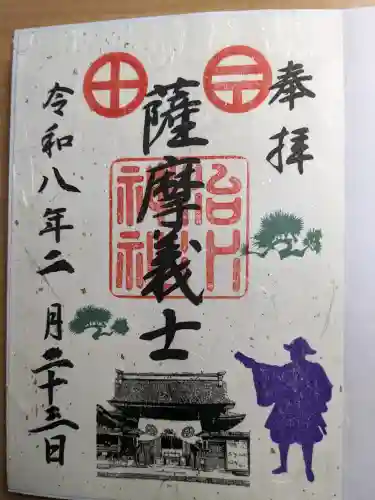 奉拝
薩摩義士
治水神社
令和八年二月二十三日